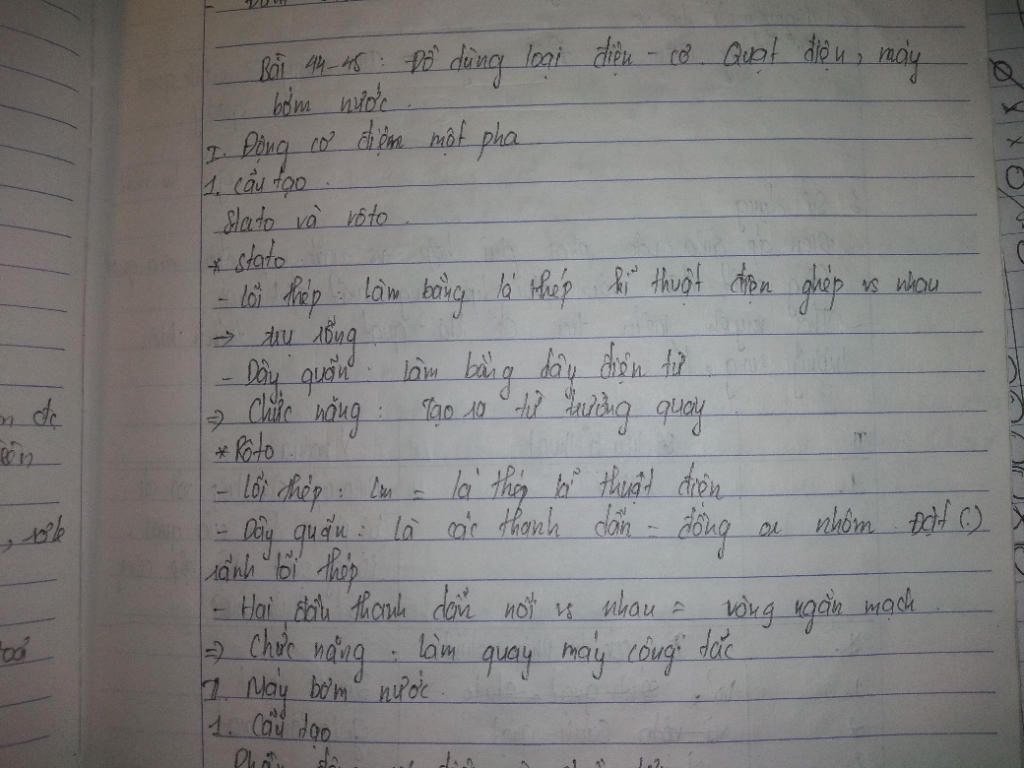 Bài 44-45: Đồ dùng loại điện - cơ. Quạt điện, máy
bơm nước.
I. Động cơ điện một pha
1. Cấu tạo.
Stato và rôto.
* Stato
- Lõi thép: làm bằng lá thép kĩ thuật điện ghép vs nhau
→ trụ rỗng
- Dây quấn: làm bằng dây điện từ.
⇒ Chức năng: Tạo ra từ trường quay.
* Rôto.
- Lõi thép: lm = lá thép kĩ thuật điện.
- Dây quấn: là các thanh dẫn = đồng or nhôm. Đặt (.)
rãnh lõi thép
- Hai đầu thanh dẫn nối vs nhau = vòng ngắn mạch.
⇒ Chức năng: làm quay máy công tắc
I. Máy bơm nước.
1. Cấu tạo
n đc